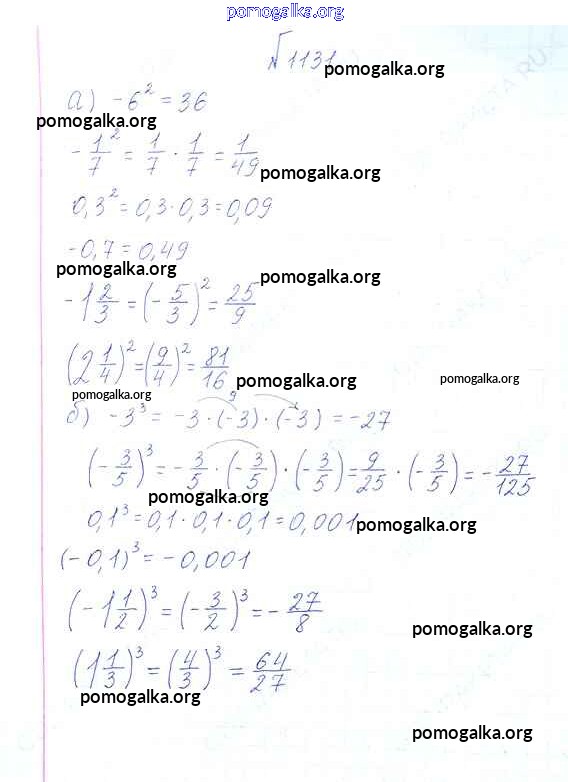 pomogalka.org
№ 1131
pomogalka.org
а) -6² = 36
pomogalka.org
-1/7² = 1/7 · 1/7 = 1/49
pomogalka.org
0,3² = 0,3·0,3 = 0,09
-0,7 = 0,49
pomogalka.org
pomogalka.org
-1 2/3 = (-5/3)² = 25/9
(2 1/4)² = (9/4)² = 81/16
pomogalka.org
pomogalka.org
9
б) -3³ = -3 · (-3) · (-3) = -27
(-3/5)³ = -3/5 · (-3/5) · (-3/5) = 9/25 · (-3/5) = -27/125
pomogalka.org
0,1³ = 0,1 · 0,1 · 0,1 = 0,001
pomogalka.org
(-0,1)³ = -0,001
(-1 1/2)³ = (-3/2)³ = -27/8
pomogalka.org
(1 1/3)³ = (4/3)³ = 64/27
pomogalka.org
pomogalka.org